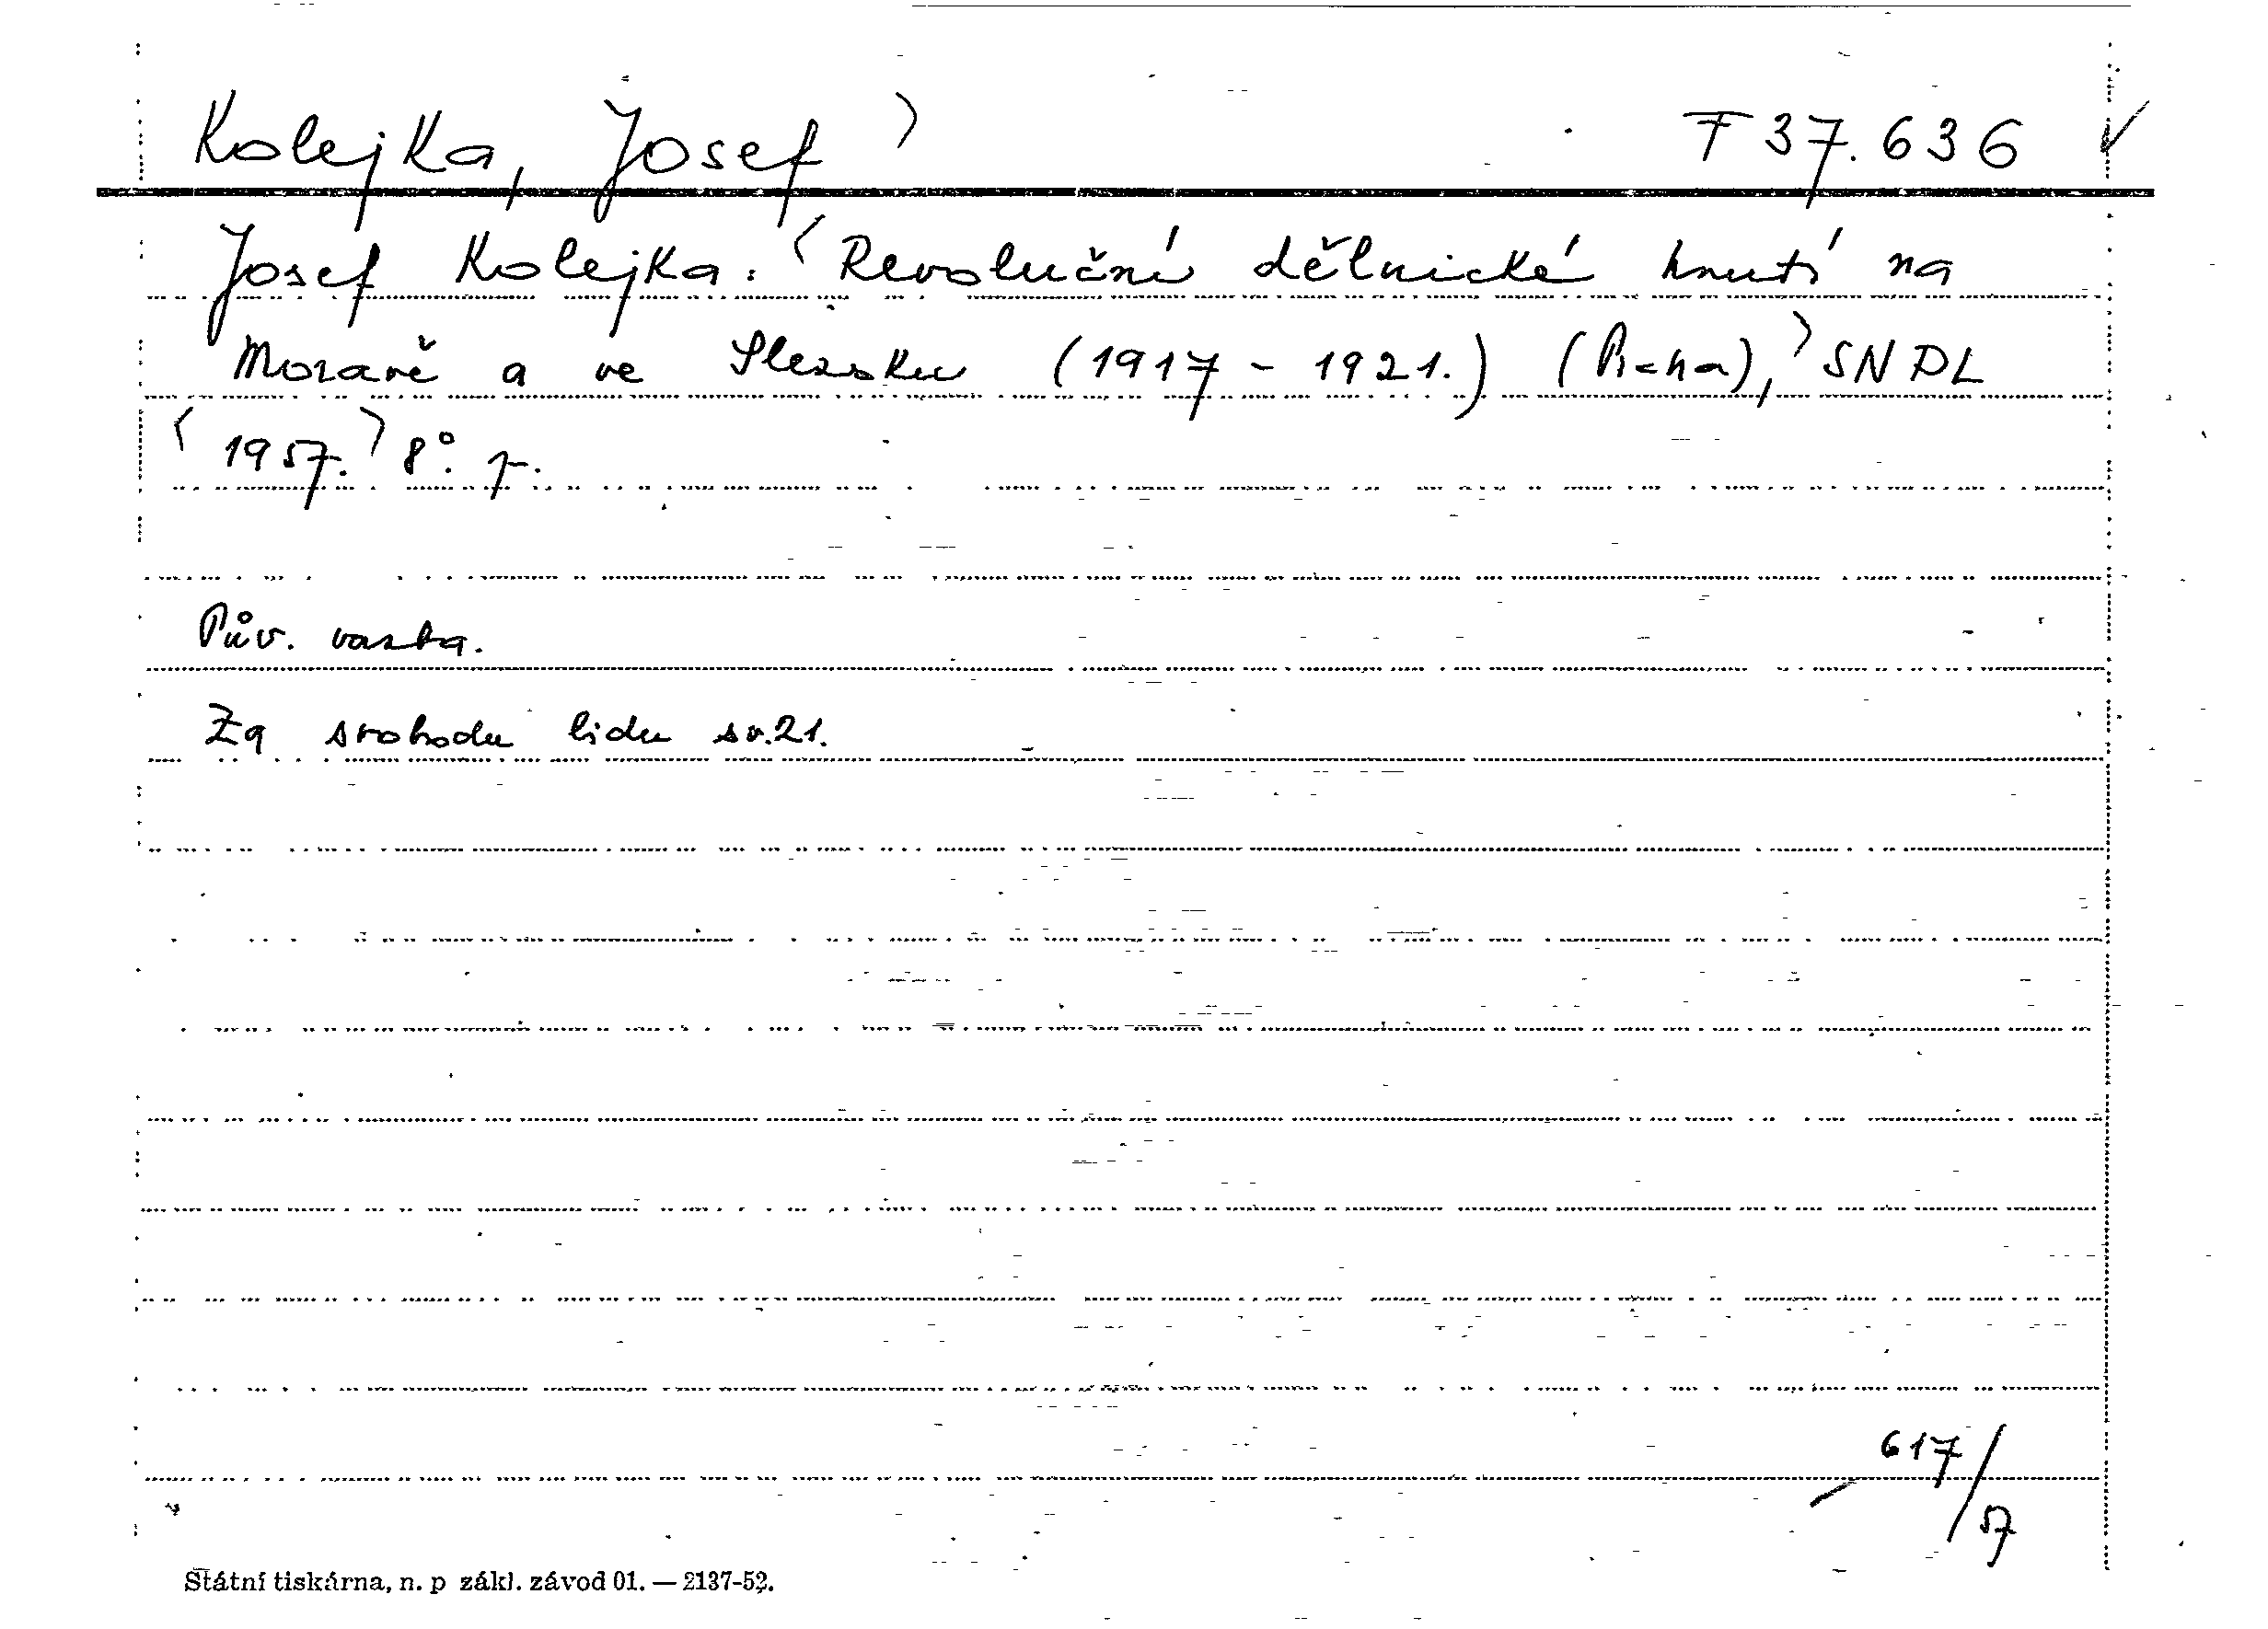 Kolejka, Josef ⟩ F 37.636 ✓
Josef Kolejka: ⟨Revoluční dělnické hnutí na
Moravě a ve Slezsku (1917 - 1921.) (Praha),⟩ SNPL
⟨1957.⟩ 8°. p.
Pův. vazba.
Za svobodu lidu sv.21.
617/57
Státní tiskárna, n. p zákl. závod 01. — 2137-52.